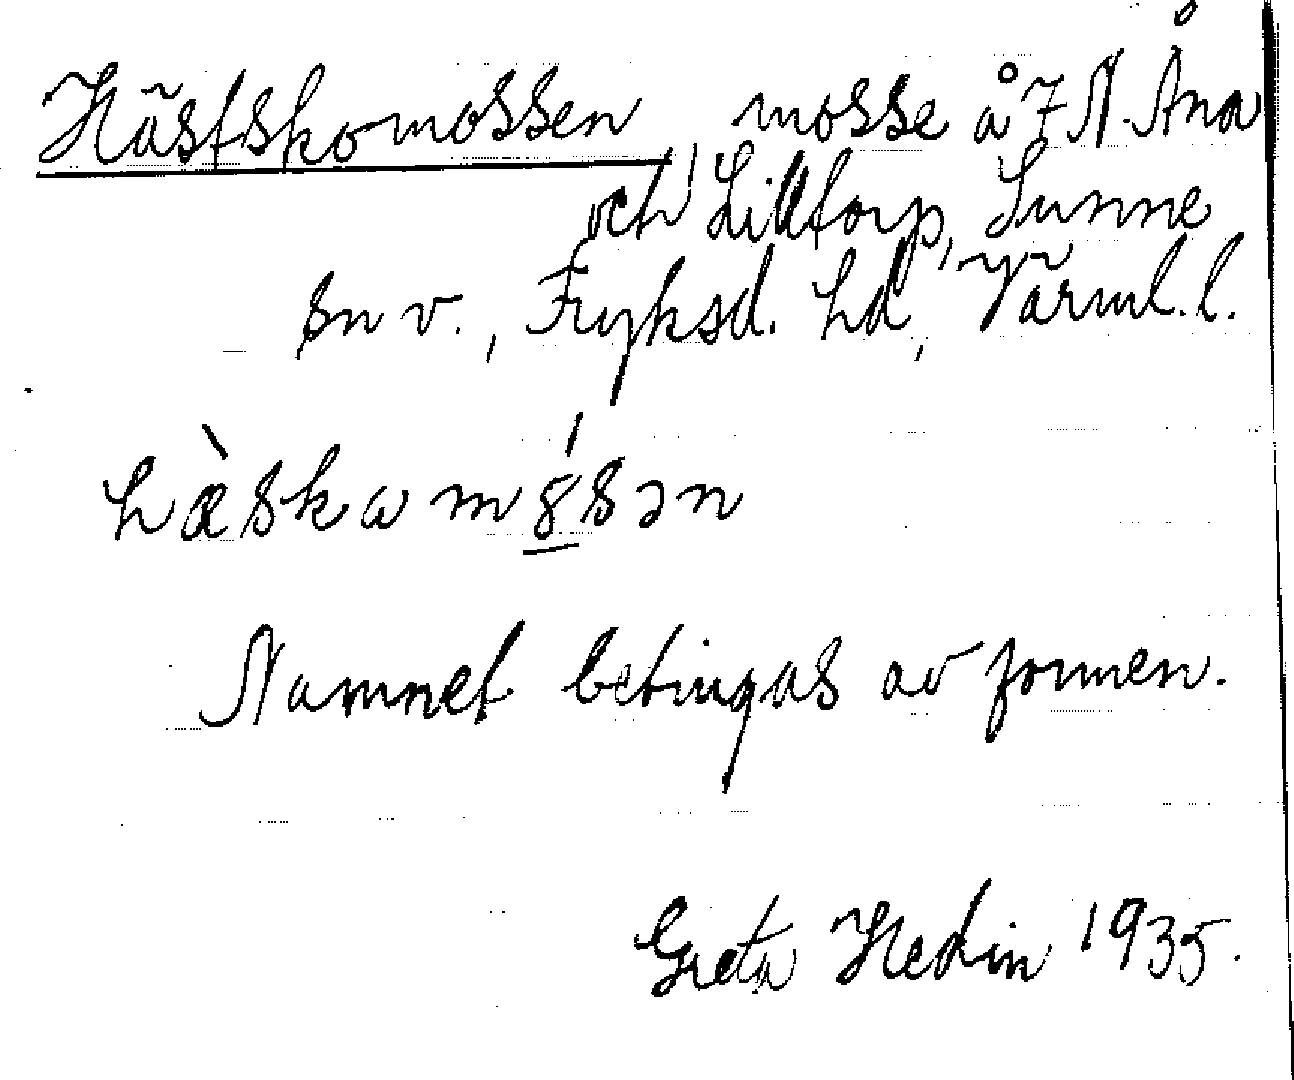 Hästskomossen, mosse å 7 N. Åna
och Lilltorp, Sunne
sn v., Fryksd. hd, Värml. l.
hæ̀skωmó̱sən
Namnet betingas av formen.
Greta Hedin 1935.